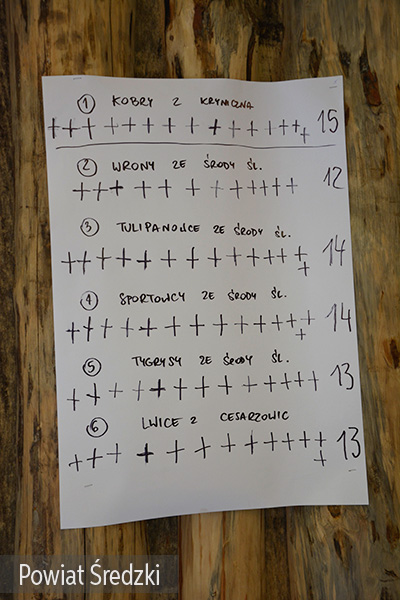 1 KOBRY Z KRYNICZNA
+ + + + + + + + + + + + + + + 15
2 WRONY ZE ŚRODY ŚL.
+ + + + + + + + + + + + 12
3 TULIPANOJCE ZE ŚRODY ŚL.
+ + + + + + + + + + + + + + 14
4 SPORTOWCY ZE ŚRODY ŚL.
+ + + + + + + + + + + + + + 14
5 TYGRYSY ZE ŚRODY ŚL.
+ + + + + + + + + + + + + 13
6 LWICE Z CESARZOWIC
+ + + + + + + + + + + + + 13
Powiat Średzki